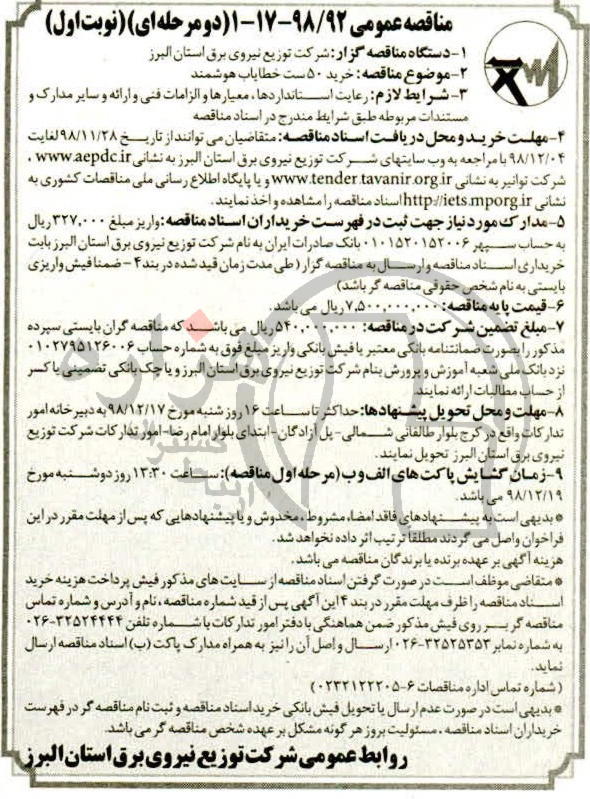 مناقصه عمومی ۹۸/۹۲-۱۷-۱ (دو مرحله ای) (نوبت اول)
۱- دستگاه مناقصه گزار: شرکت توزیع نیروی برق استان البرز
۲- موضوع مناقصه: خرید ۵۰ ست خطایاب هوشمند
۳- شرایط لازم: رعایت استانداردها، معیارها و الزامات فنی و ارائه و سایر مدارک و
مستندات مربوطه طبق شرایط مندرج در اسناد مناقصه
۴- مهلت خرید و محل دریافت اسناد مناقصه: متقاضیان می توانند از تاریخ ۹۸/۱۱/۲۸ لغایت
۹۸/۱۲/۰۴ با مراجعه به وب سایتهای شرکت توزیع نیروی برق استان البرز به نشانی www.aepdc.ir ،
شرکت توانیر به نشانی www.tender.tavanir.org.ir و یا پایگاه اطلاع رسانی ملی مناقصات کشوری به
نشانی http://iets.mporg.ir اسناد مناقصه را مشاهده و اخذ نمایند.
۵- مدارک مورد نیاز جهت ثبت در فهرست خریداران اسناد مناقصه: واریز مبلغ ۳۲۷,۰۰۰ ریال
به حساب سپهر ۰۱۰۱۵۲۰۱۵۲۰۰۶ بانک صادرات ایران به نام شرکت توزیع نیروی برق استان البرز بابت
خریداری اسناد مناقصه و ارسال به مناقصه گزار (طی مدت زمان قید شده در بند ۴- ضمنا فیش واریزی
بایستی به نام شخص حقوقی مناقصه گر باشد)
۶- قیمت پایه مناقصه: ۷,۵۰۰,۰۰۰,۰۰۰ ریال می باشد.
۷- مبلغ تضمین شرکت در مناقصه: ۵۴۰,۰۰۰,۰۰۰ ریال می باشد که مناقصه گران بایستی سپرده
مذکور را بصورت ضمانتنامه بانکی معتبر یا فیش بانکی واریز مبلغ فوق به شماره حساب ۰۱۰۲۷۹۵۱۲۶۰۰۶
نزد بانک ملی شعبه آموزش و پرورش بنام شرکت توزیع نیروی برق استان البرز و یا چک بانکی تضمینی یا کسر
از حساب مطالبات ارائه نمایند.
۸- مهلت و محل تحویل پیشنهادها: حداکثر تا ساعت ۱۶ روز شنبه مورخ ۹۸/۱۲/۱۷ به دبیرخانه امور
تدارکات واقع در کرج بلوار طالقانی شمالی- پل آزادگان- ابتدای بلوار امام رضا- امور تدارکات شرکت توزیع
نیروی برق استان البرز تحویل نمایند.
۹- زمان گشایش پاکت های الف و ب (مرحله اول مناقصه): ساعت ۱۳:۳۰ روز دوشنبه مورخ
۹۸/۱۲/۱۹ می باشد.
* بدیهی است به پیشنهادهای فاقد امضاء، مشروط، مخدوش و یا پیشنهادهایی که پس از مهلت مقرر در این
فراخوان واصل می گردند مطلقا ترتیب اثر داده نخواهد شد.
هزینه آگهی بر عهده برنده یا برندگان مناقصه می باشد.
* متقاضی موظف است در صورت گرفتن اسناد مناقصه از سایت های مذکور فیش پرداخت هزینه خرید
اسناد مناقصه را ظرف مهلت مقرر در بند ۴ این آگهی پس از قید شماره مناقصه، نام و آدرس و شماره تماس
مناقصه گر بر روی فیش مذکور ضمن هماهنگی با دفتر امور تدارکات با شماره تلفن ۳۲۵۲۴۴۴۴-۰۲۶
به شماره نمابر ۳۲۵۲۵۳۵۳-۰۲۶ ارسال و اصل آن را نیز به همراه مدارک پاکت (ب) اسناد مناقصه ارسال
نماید.
(شماره تماس اداره مناقصات ۶-۰۲۳۲۱۲۲۲۰۵)
* بدیهی است در صورت عدم ارسال یا تحویل فیش بانکی خرید اسناد مناقصه و ثبت نام مناقصه گر در فهرست
خریداران اسناد مناقصه ، مسئولیت بروز هر گونه مشکل بر عهده شخص مناقصه گر می باشد.
روابط عمومی شرکت توزیع نیروی برق استان البرز